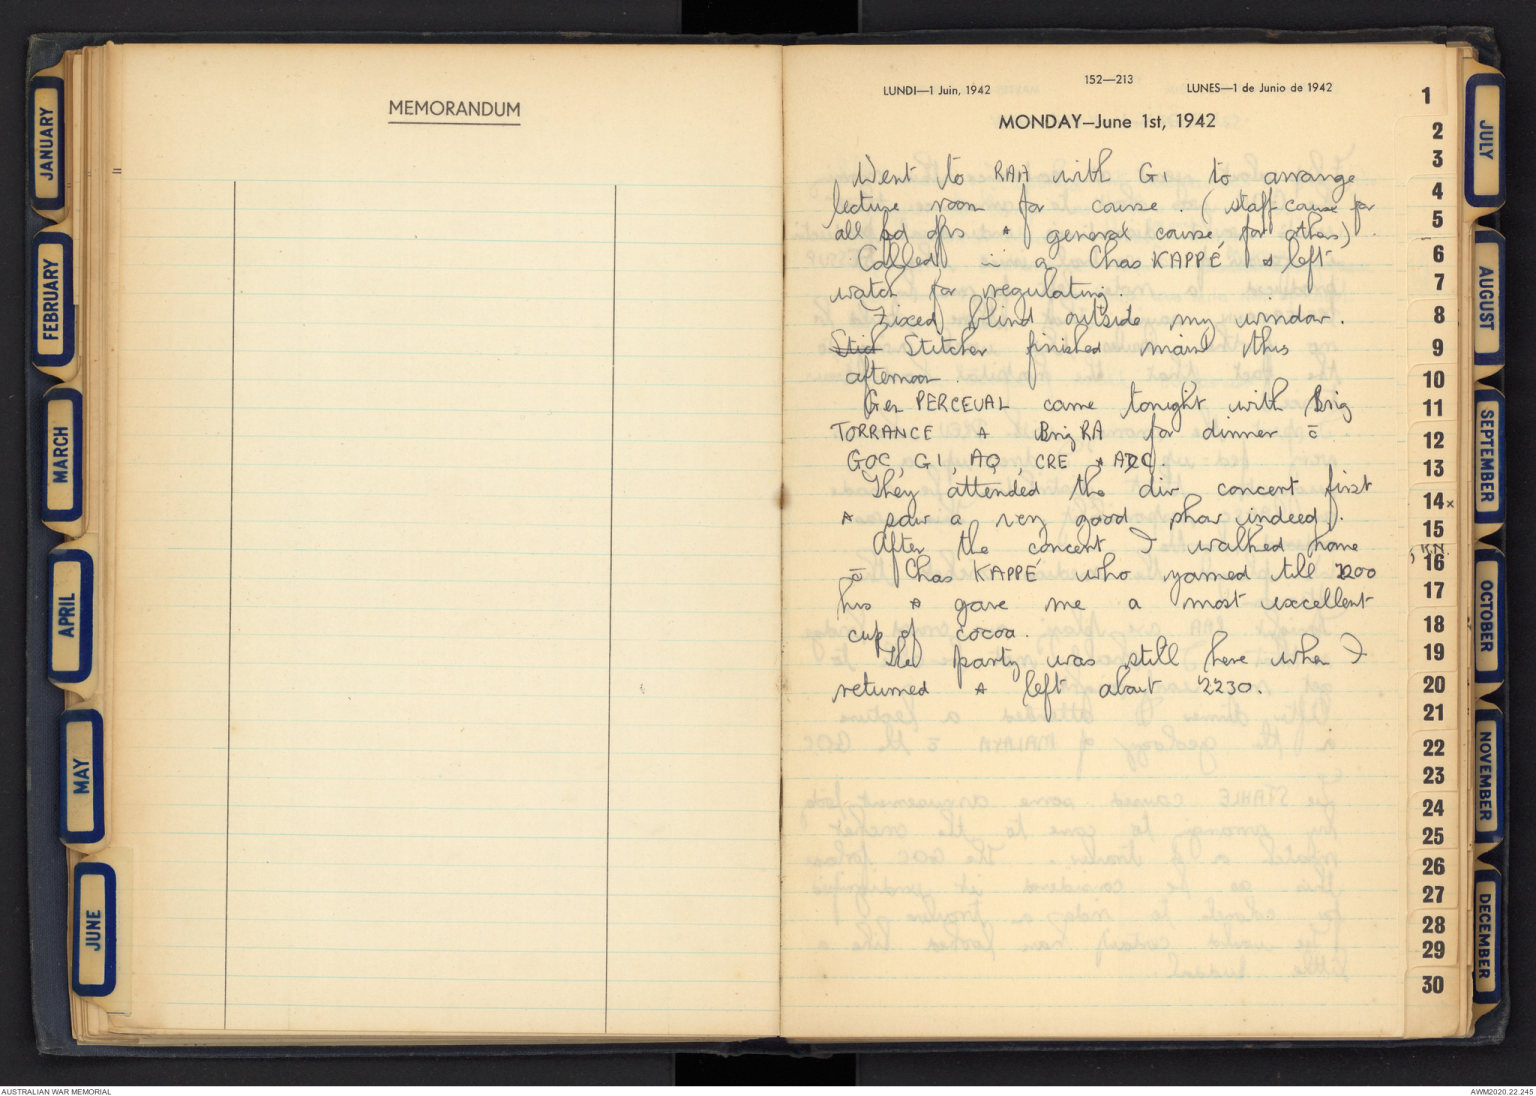 MEMORANDUM
152—213
LUNDI—1 Juin, 1942
LUNES—1 de Junio de 1942
MONDAY—June 1st, 1942
Went to RAH with G1 to arrange
lecture room for course. (staff course for
all fd offrs & general course for others)
Called in a Chas KAPPÉ & left
watch for regulating.
Fixed blind outside my window.
Stich Stitcher finished main this
afternoon.
Gen PERCEVAL came tonight with Brig
TORRANCE & Brig RA for dinner c̄
GOC, G1, AQ, CRE & ADC.
They attended the div concert first
& saw a very good show indeed.
After the concert I walked home
c̄ Chas KAPPÉ who yarned till 2200
hrs & gave me a most excellent
cup of cocoa.
The party was still here when I
returned & left about 2230.
JANUARY
FEBRUARY
MARCH
APRIL
MAY
JUNE
JULY
AUGUST
SEPTEMBER
OCTOBER
NOVEMBER
DECEMBER
1
2
3
4
5
6
7
8
9
10
11
12
13
14
15
16
17
18
19
20
21
22
23
24
25
26
27
28
29
30
AUSTRALIAN WAR MEMORIAL
AWM2020.22.245